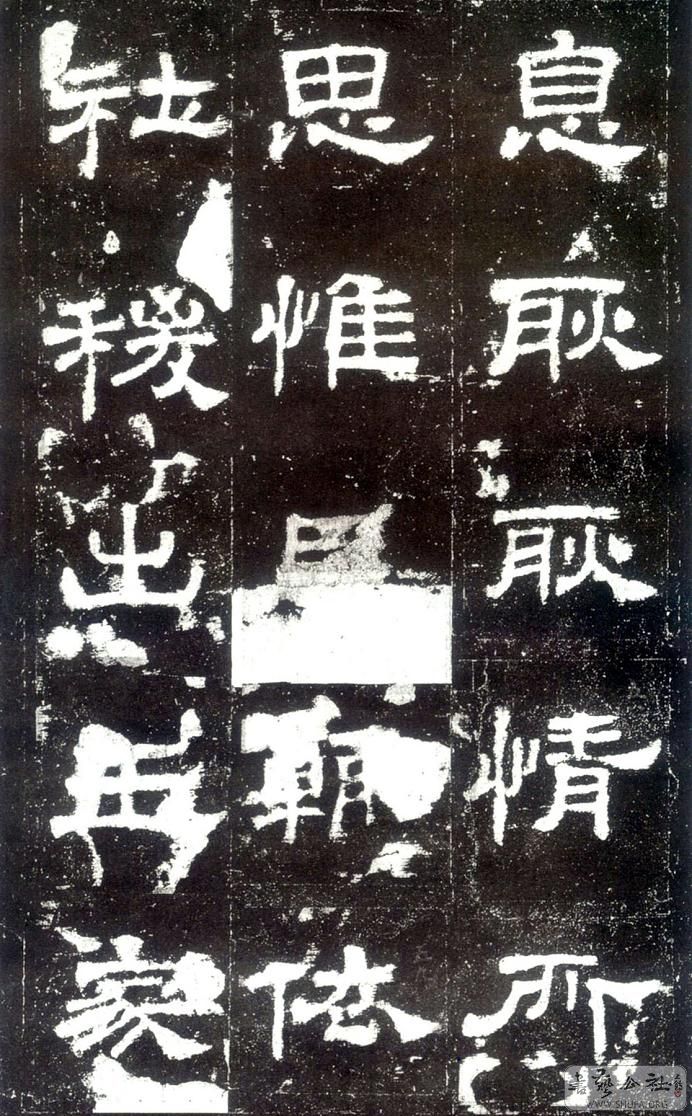 息耿耿情所
思惟臣輒依
社稷出王家
書藝公社
WWW.SHUFA.ORG